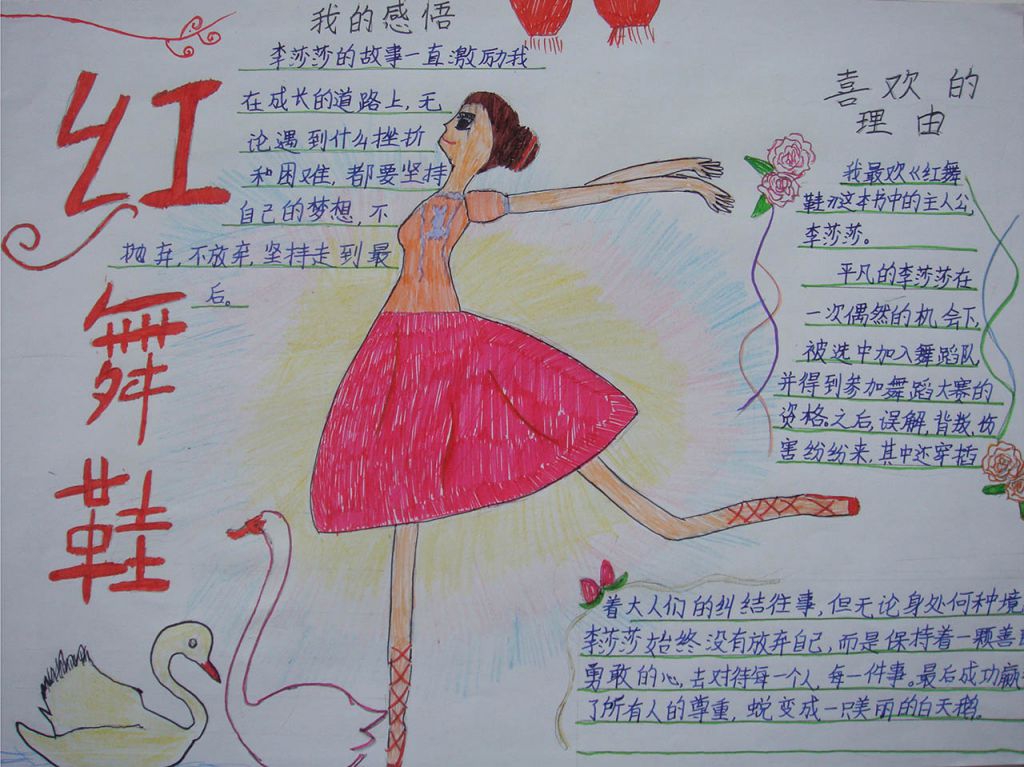 红舞鞋
我的感悟
李莎莎的故事一直激励我
在成长的道路上,无
论遇到什么挫折
和困难,都要坚持
自己的梦想,不
抛弃,不放弃,坚持走到最
后。
喜欢的
理由
我最欢《红舞
鞋》这本书中的主人公,
李莎莎。
平凡的李莎莎在
一次偶然的机会下,
被选中加入舞蹈队
并得到参加舞蹈大赛的
资格,之后,误解,背叛,伤
害纷纷来,其中还穿插
着大人们的纠结往事,但无论身处何种境
李莎莎始终没有放弃自己,而是保持着一颗善
勇敢的心,去对待每一个人,每一件事。最后成功赢
了所有人的尊重,蜕变成一只美丽的白天鹅。